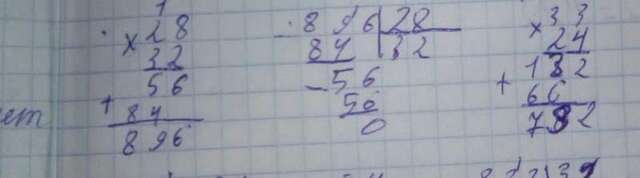 1
× 28
32
56
+ 84
896
ет
- 896 | 28
84 | 32
- 56
56
0
× 33
24
132
+ 66
792